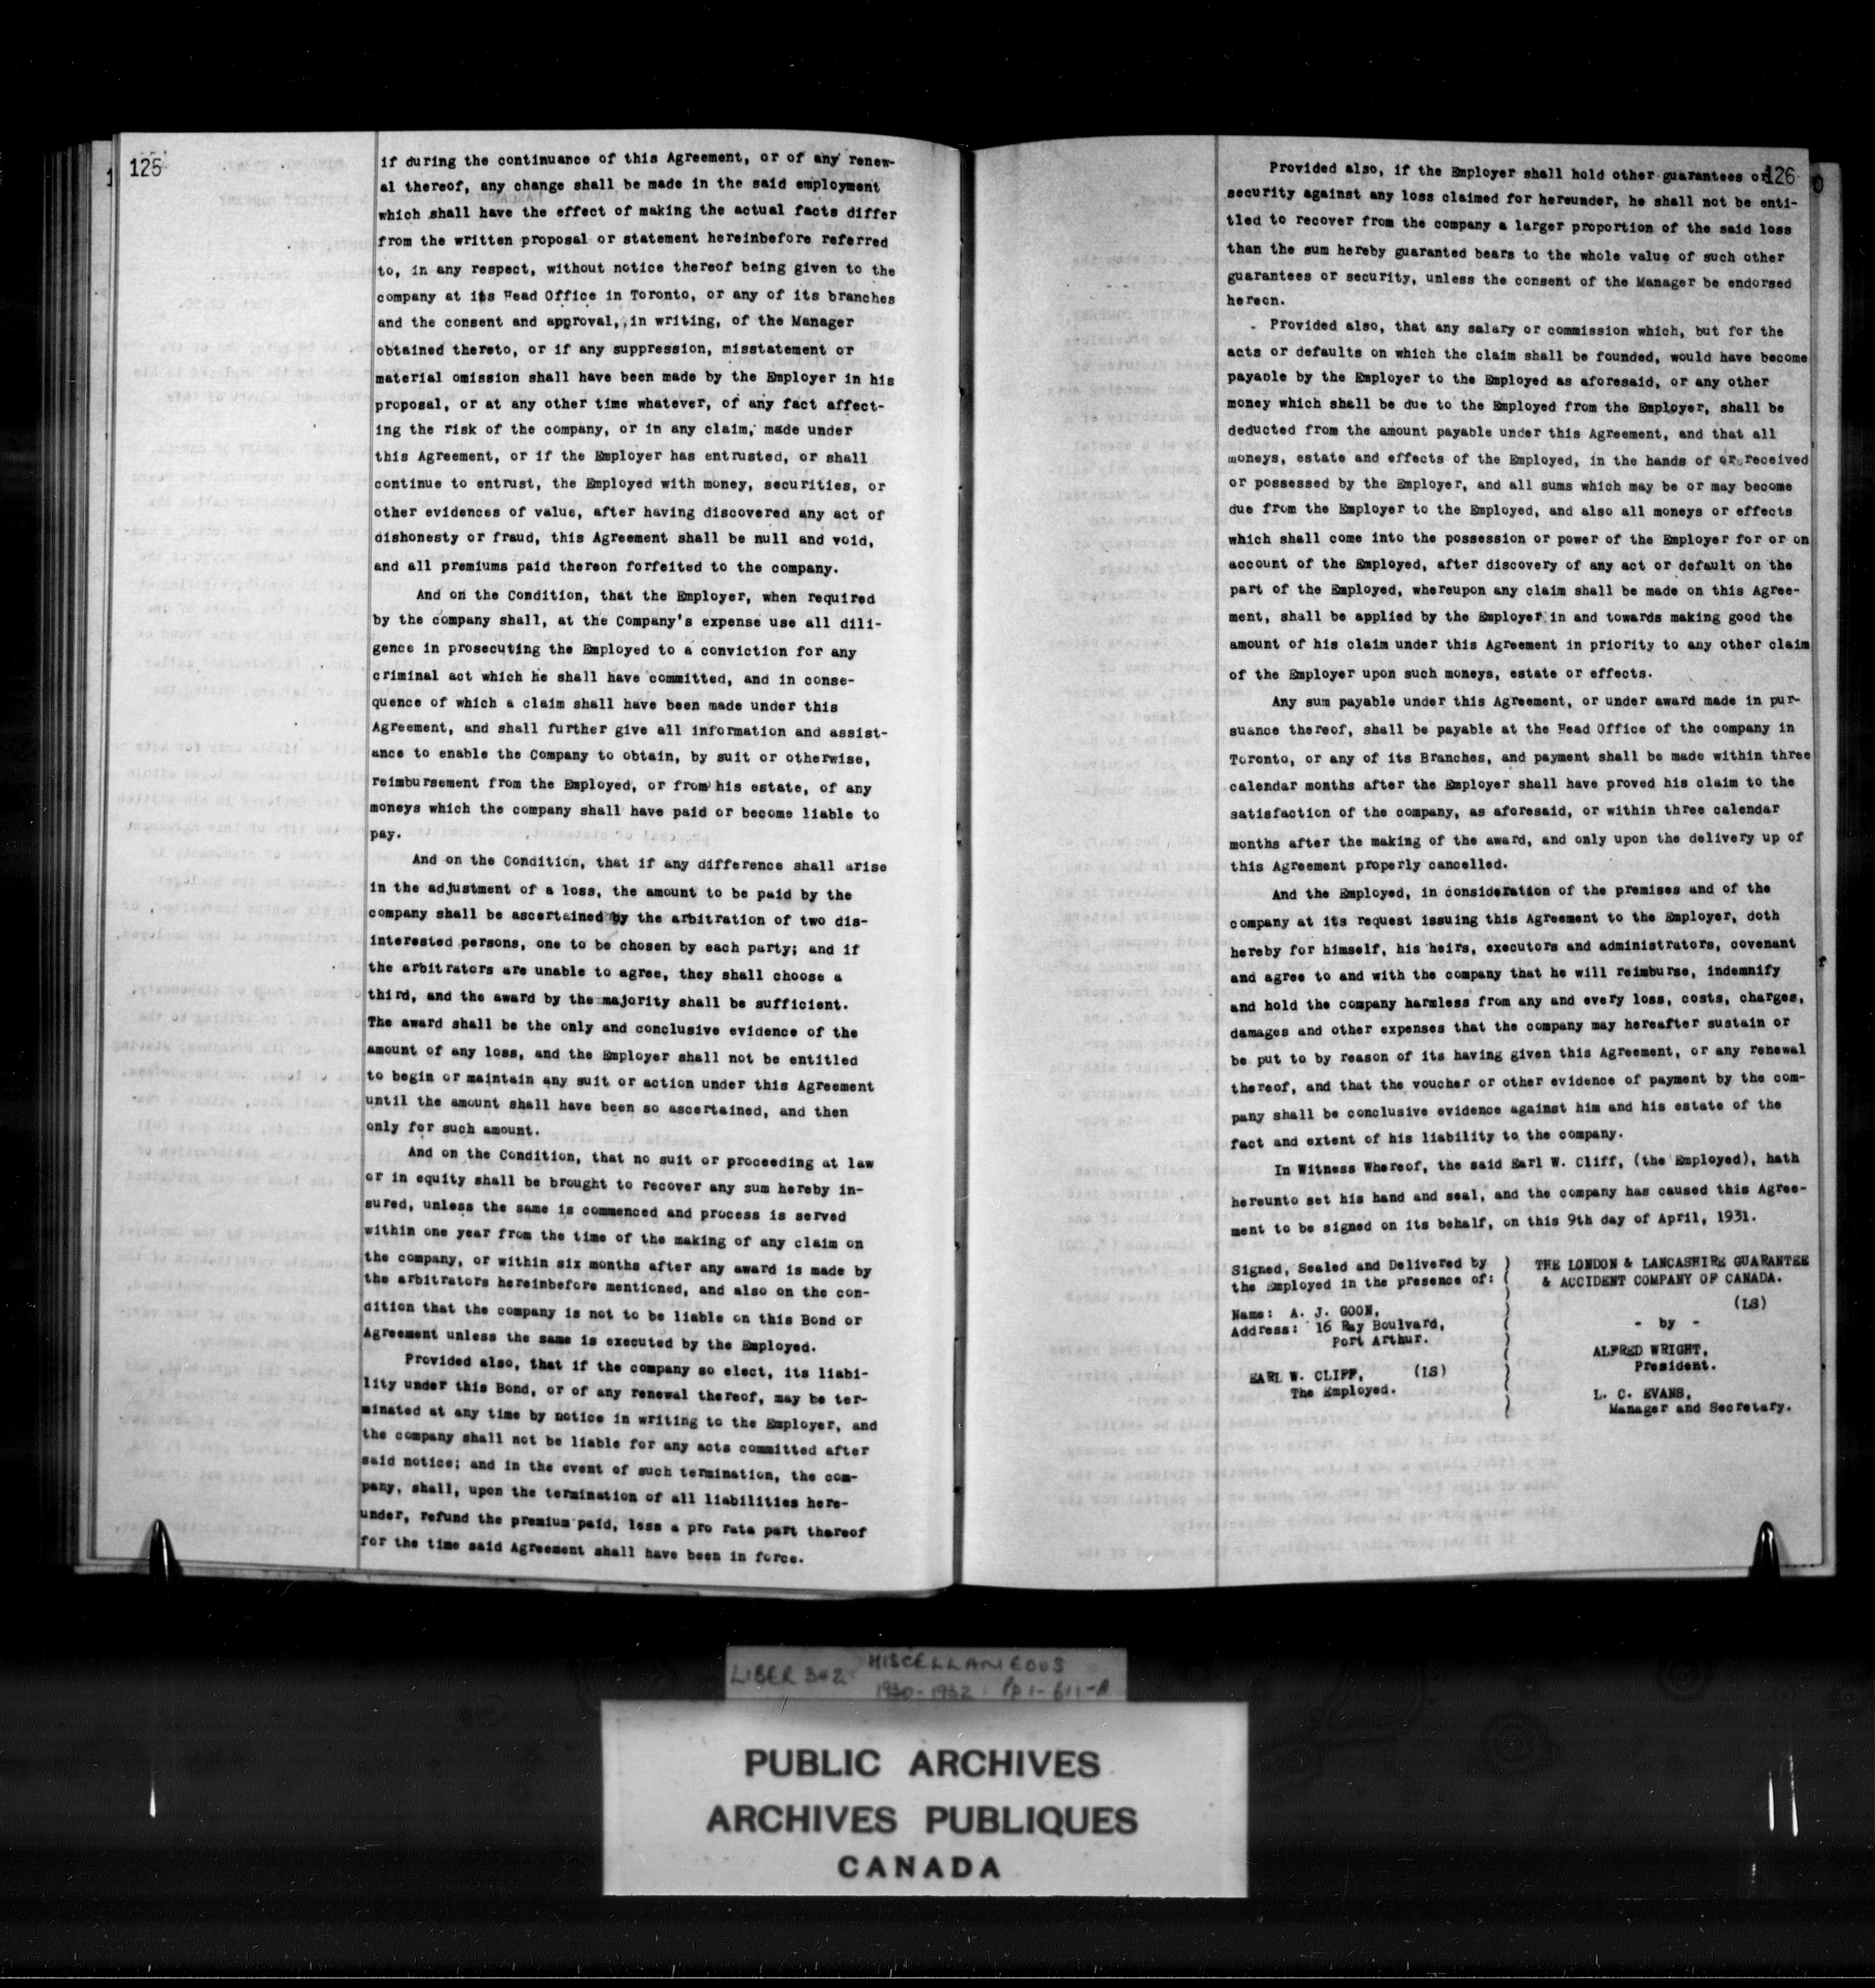 125
if during the continuance of this Agreement, or of any renew-
al thereof, any change shall be made in the said employment
which shall have the effect of making the actual facts differ
from the written proposal or statement hereinbefore referred
to, in any respect, without notice thereof being given to the
company at its Head Office in Toronto, or any of its branches
and the consent and approval, in writing, of the Manager
obtained thereto, or if any suppression, misstatement or
material omission shall have been made by the Employer in his
proposal, or at any other time whatever, of any fact affect-
ing the risk of the company, or in any claim, made under
this Agreement, or if the Employer has entrusted, or shall
continue to entrust, the Employed with money, securities, or
other evidences of value, after having discovered any act of
dishonesty or fraud, this Agreement shall be null and void,
and all premiums paid thereon forfeited to the company.
And on the Condition, that the Employer, when required
by the company shall, at the Company's expense use all dili-
gence in prosecuting the Employed to a conviction for any
criminal act which he shall have committed, and in conse-
quence of which a claim shall have been made under this
Agreement, and shall further give all information and assist-
ance to enable the Company to obtain, by suit or otherwise,
reimbursement from the Employed, or from his estate, of any
moneys which the company shall have paid or become liable to
pay.
And on the Condition, that if any difference shall arise
in the adjustment of a loss, the amount to be paid by the
company shall be ascertained by the arbitration of two dis-
interested persons, one to be chosen by each party; and if
the arbitrators are unable to agree, they shall choose a
third, and the award by the majority shall be sufficient.
The award shall be the only and conclusive evidence of the
amount of any loss, and the Employer shall not be entitled
to begin or maintain any suit or action under this Agreement
until the amount shall have been so ascertained, and then
only for such amount.
And on the Condition, that no suit or proceeding at law
or in equity shall be brought to recover any sum hereby in-
sured, unless the same is commenced and process is served
within one year from the time of the making of any claim on
the company, or within six months after any award is made by
the arbitrators hereinbefore mentioned, and also on the con-
dition that the company is not to be liable on this Bond or
Agreement unless the same is executed by the Employed.
Provided also, that if the company so elect, its liabi-
lity under this Bond, or of any renewal thereof, may be ter-
minated at any time by notice in writing to the Employer, and
the company shall not be liable for any acts committed after
said notice; and in the event of such termination, the com-
pany, shall, upon the termination of all liabilities here-
under, refund the premium paid, less a pro rata part thereof
for the time said Agreement shall have been in force.
126
Provided also, if the Employer shall hold other guarantees or
security against any loss claimed for hereunder, he shall not be enti-
tled to recover from the company a larger proportion of the said loss
than the sum hereby guaranted bears to the whole value of such other
guarantees or security, unless the consent of the Manager be endorsed
hereon.
Provided also, that any salary or commission which, but for the
acts or defaults on which the claim shall be founded, would have become
payable by the Employer to the Employed as aforesaid, or any other
money which shall be due to the Employed from the Employer, shall be
deducted from the amount payable under this Agreement, and that all
moneys, estate and effects of the Employed, in the hands of or received
or possessed by the Employer, and all sums which may be or may become
due from the Employer to the Employed, and also all moneys or effects
which shall come into the possession or power of the Employer for or on
account of the Employed, after discovery of any act or default on the
part of the Employed, whereupon any claim shall be made on this Agree-
ment, shall be applied by the Employer in and towards making good the
amount of his claim under this Agreement in priority to any other claim
of the Employer upon such moneys, estate or effects.
Any sum payable under this Agreement, or under award made in pur-
suance thereof, shall be payable at the Head Office of the company in
Toronto, or any of its Branches, and payment shall be made within three
calendar months after the Employer shall have proved his claim to the
satisfaction of the company, as aforesaid, or within three calendar
months after the making of the award, and only upon the delivery up of
this Agreement properly cancelled.
And the Employed, in consideration of the premises and of the
company at its request issuing this Agreement to the Employer, doth
hereby for himself, his heirs, executors and administrators, covenant
and agree to and with the company that he will reimburse, indemnify
and hold the company harmless from any and every loss, costs, charges,
damages and other expenses that the company may hereafter sustain or
be put to by reason of its having given this Agreement, or any renewal
thereof, and that the voucher or other evidence of payment by the com-
pany shall be conclusive evidence against him and his estate of the
fact and extent of his liability to the company.
In Witness Whereof, the said Earl W. Cliff, (the Employed), hath
hereunto set his hand and seal, and the company has caused this Agree-
ment to be signed on its behalf, on this 9th day of April, 1931.
Signed, Sealed and Delivered by
the Employed in the presence of:
Name: A. J. GOON,
Address: 16 Ray Boulvard,
Port Arthur.
EARL W. CLIFF, (LS)
The Employed.
THE LONDON & LANCASHIRE GUARANTEE
& ACCIDENT COMPANY OF CANADA.
(LS)
- by -
ALFRED WRIGHT,
President.
L. C. EVANS,
Manager and Secretary.
LIBER 342 MISCELLANEOUS
1930-1932 Pp 1-611-A
PUBLIC ARCHIVES
ARCHIVES PUBLIQUES
CANADA